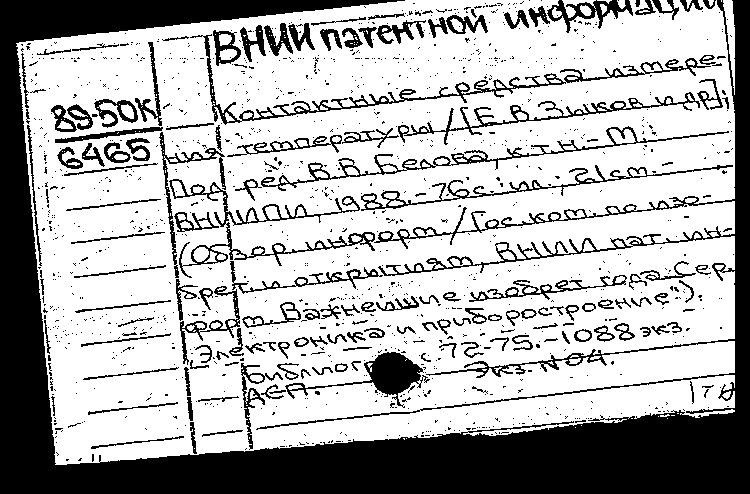 ВНИИ патентной информации
89-50К
6465
Контактные средства измере-
ния температуры / [Е.В. Зыков и др];
Под ред. В.В. Белова, к.т.н.- М.:
ВНИИПИ, 1988.-76с.: ил.; 21см.-
(Обзор. информ. / Гос. ком. по изо-
брет. и открытиям, ВНИИ пат. ин-
форм. Важнейшие изобрет года. Сер.
"Электроника и приборостроение").
Библиогр с 72-75.-1088 экз.
Экз. N 04.